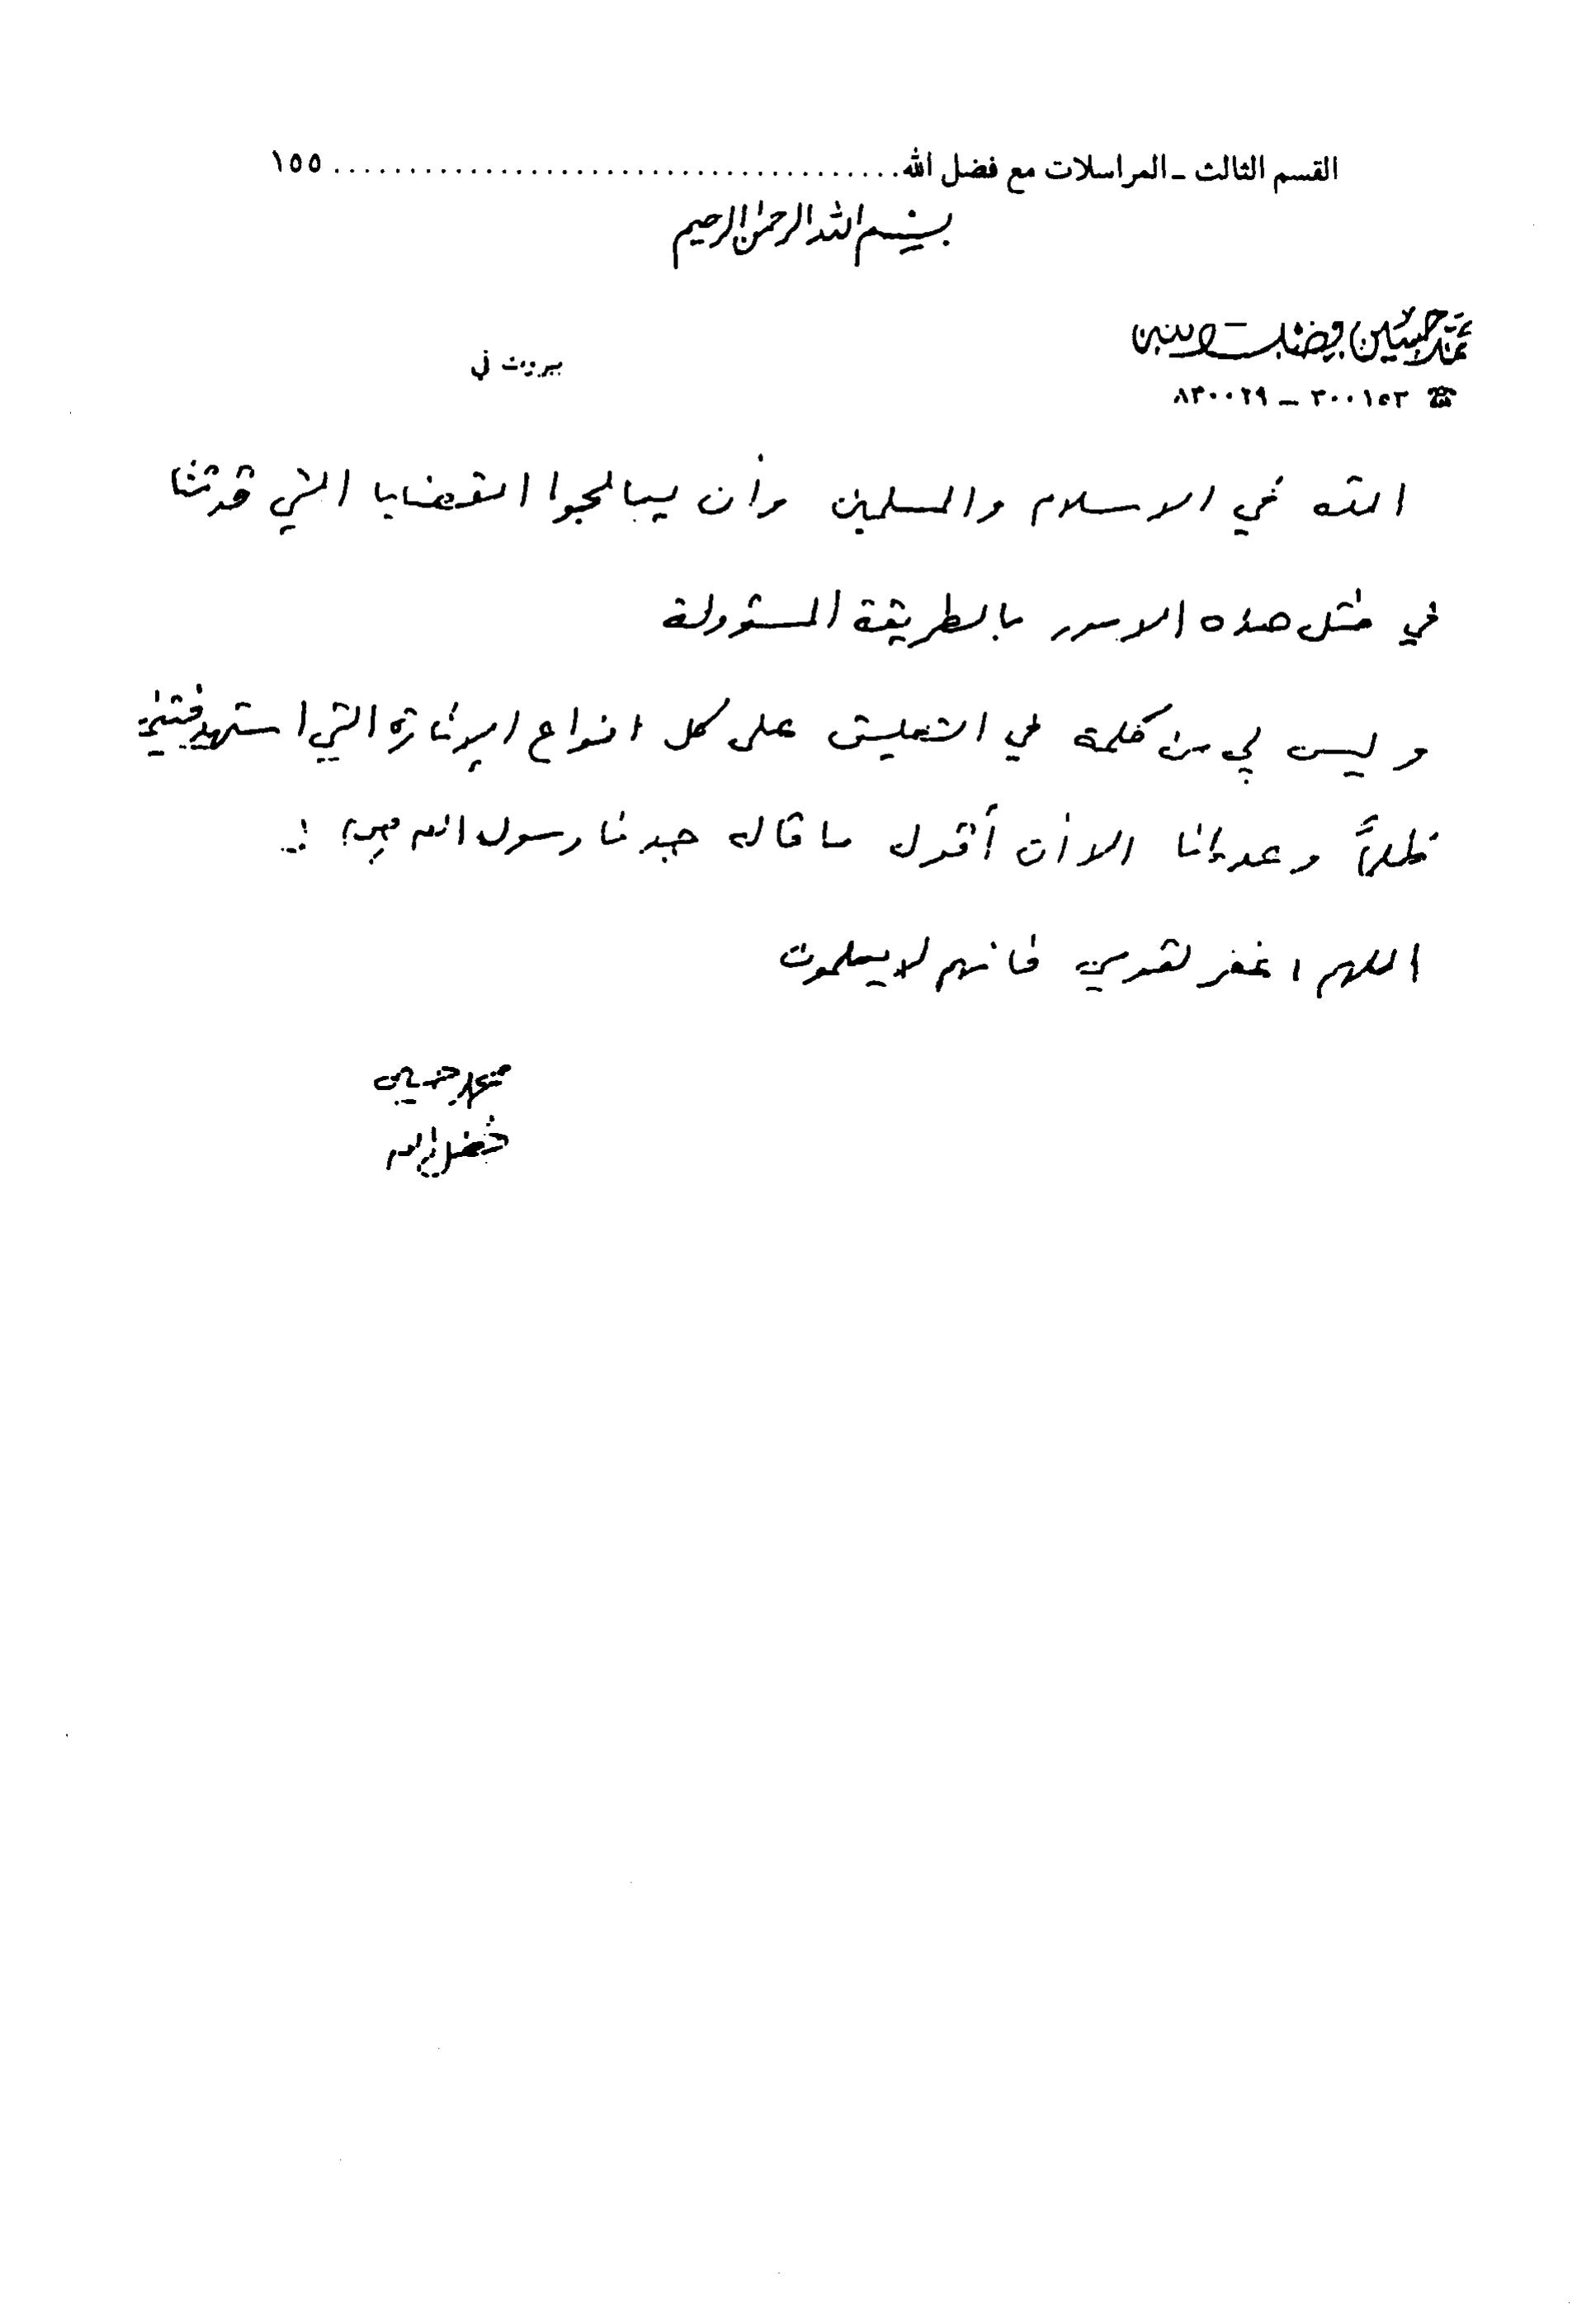 القسم الثالث ـ المراسلات مع فضل الله ..................................... ١٥٥
بسم الله الرحمن الرحيم
محمد حسين فضل الله
بيروت في
☎ ٣٠٠١٥٣ – ٨٣٠٠٢٩
الله في الاسلام والمسلمين وأن يعالجوا القضايا التي
في مثل هذه الامور بالطريقة المسئولة
وليس لي من كلمة في التعليق على كل انواع الإثارة التي استهدفتني
ظلماً وعدوانا الا أن أقول ما قاله جدنا رسول الله
اللهم اغفر لقومي فانهم لا يعلمون
محمد حسين
فضل الله